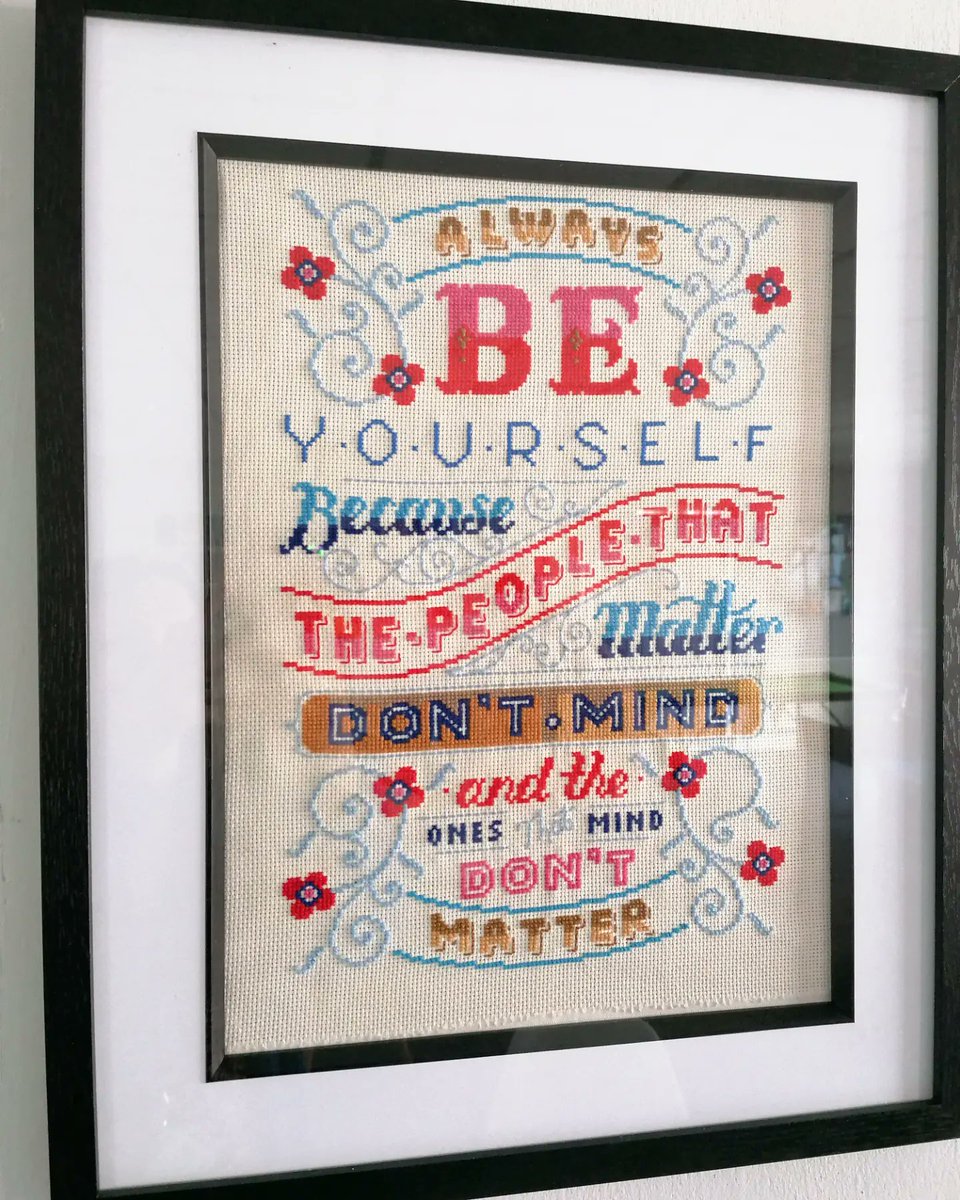 ALWAYS
BE
Y·O·U·R·S·E·L·F
Because
THE·PEOPLE·THAT
Matter
DON'T·MIND
·and the·
ONES That MIND
DON'T
MATTER